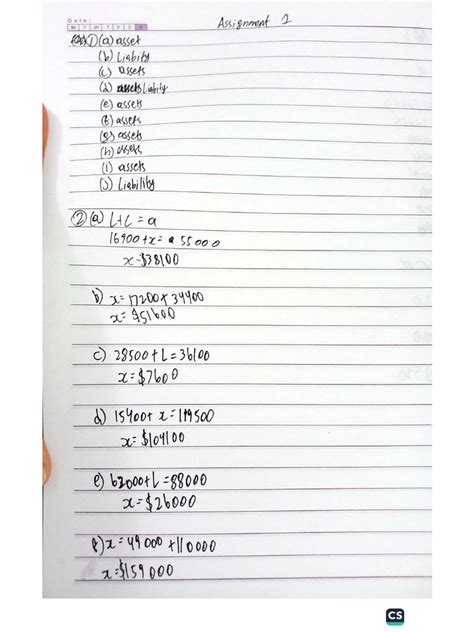 Date:
M T W T F S S
Assignment 1
① (a) asset
(b) Liability
(c) assets
(d) Liability
(e) assets
(f) assets
(g) assets
(h) assets
(i) assets
(j) Liability
② (a) L+C = a
16900 + x = 55000
x = $38100
b) x = 17200 + 34400
x = $51600
c) 28500 + L = 36100
x = $7600
d) 15400 + x = 119500
x = $104100
e) 62000 + L = 88000
x = $26000
f) x = 49000 + 110000
x = $159000
CS